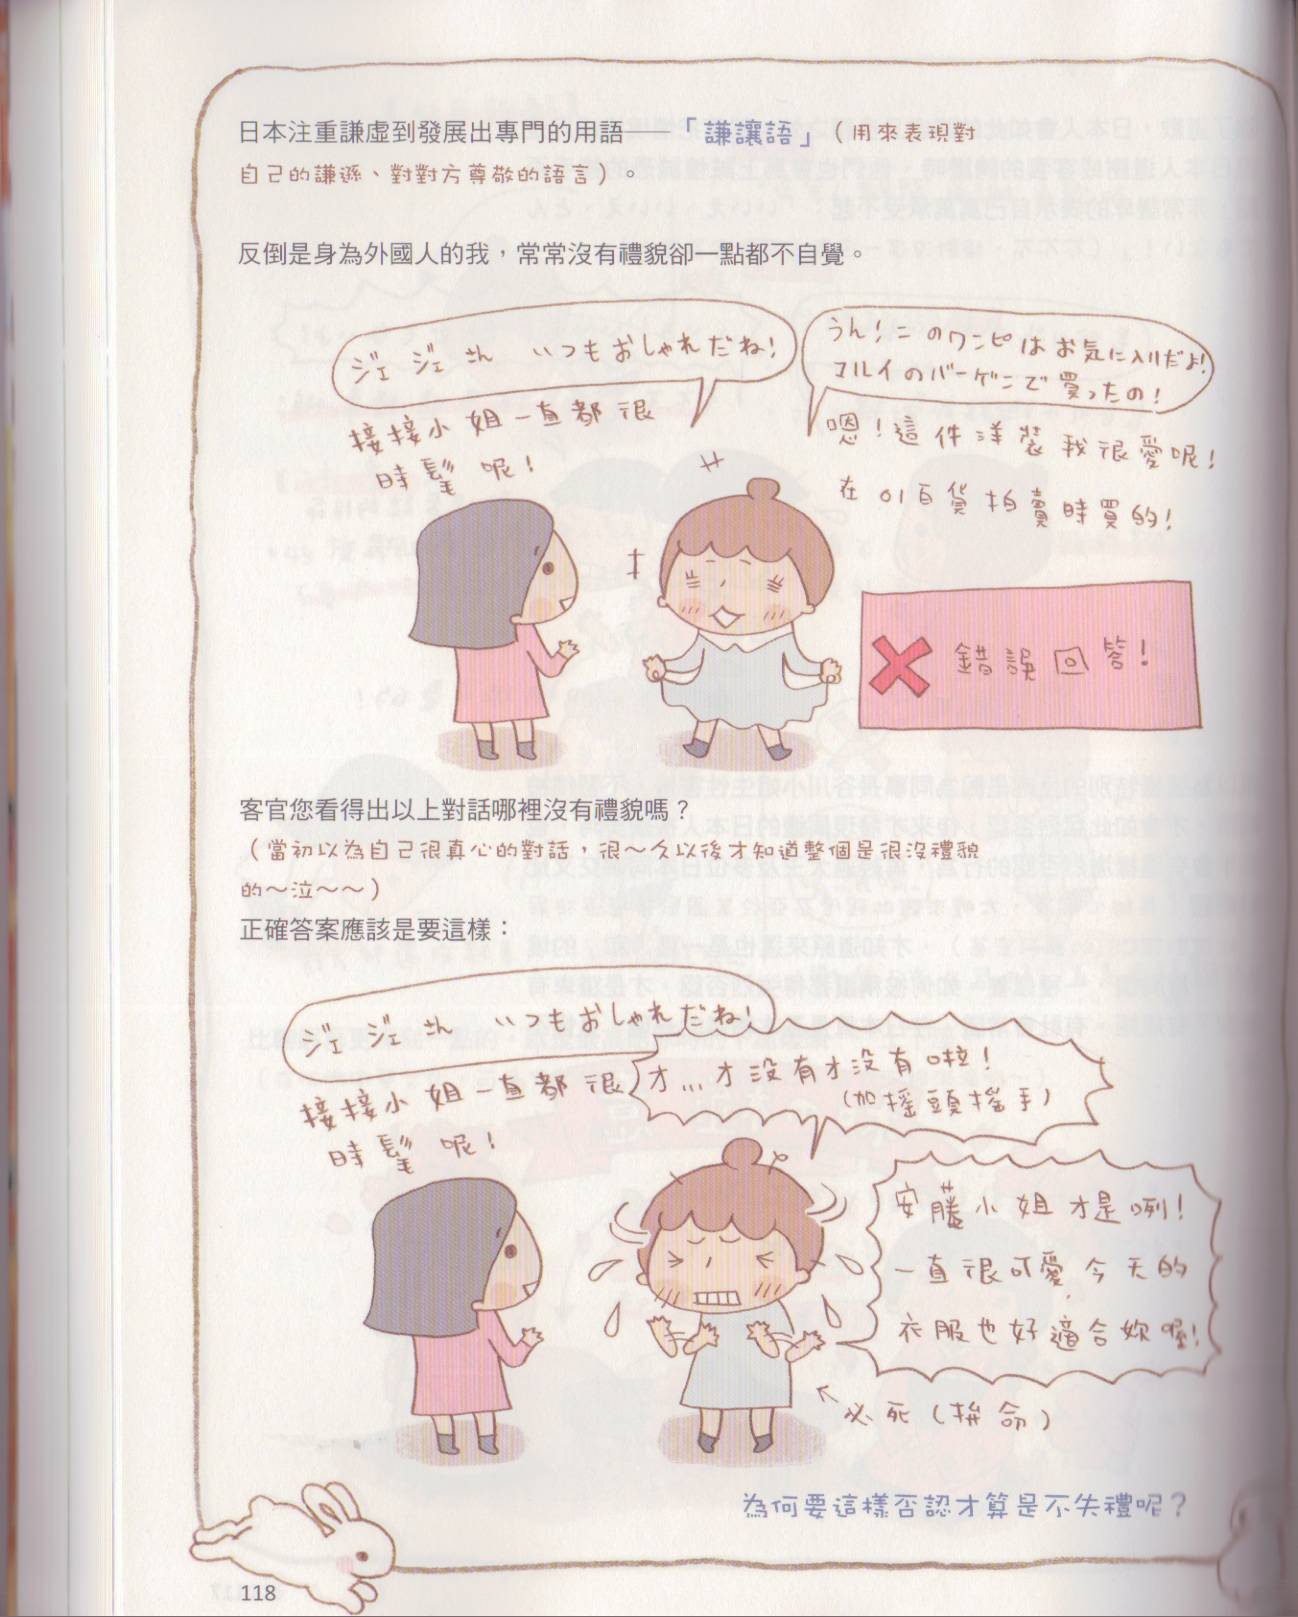 日本注重謙虛到發展出專門的用語——「謙讓語」（用來表現對
自己的謙遜、對對方尊敬的語言）。
反倒是身為外國人的我，常常沒有禮貌卻一點都不自覺。
ジェジェさん いつもおしゃれだね！
接接小姐一直都很
時髦呢！
うん！このワンピはお気に入りだよ！
マルイのバーゲンで買ったの！
嗯！這件洋裝我很愛呢！
在01百貨拍賣時買的！
錯誤回答！
客官您看得出以上對話哪裡沒有禮貌嗎？
（當初以為自己很真心的對話，很～久以後才知道整個是很沒禮貌
的～泣～～）
正確答案應該是要這樣：
ジェジェさん いつもおしゃれだね！
接接小姐一直都很
時髦呢！
才...才没有才没有啦！
（加搖頭搖手）
安藤小姐才是咧！
一直很可愛，今天的
衣服也好適合妳喔！
必死（拚命）
為何要這樣否認才算是不失禮呢？
118